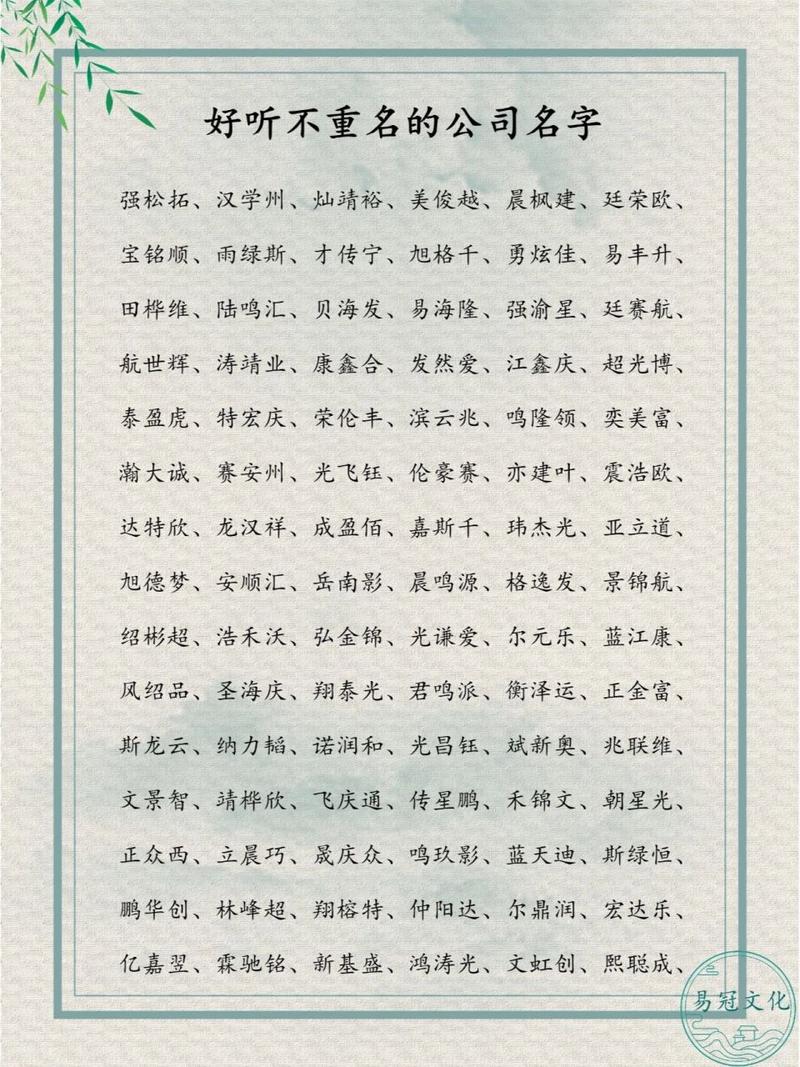 好听不重名的公司名字
强松拓、汉学州、灿靖裕、美俊越、晨枫建、廷荣欧、
宝铭顺、雨绿斯、才传宁、旭格千、勇炫佳、易丰升、
田桦维、陆鸣汇、贝海发、易海隆、强渝星、廷赛航、
航世辉、涛靖业、康鑫合、发然爱、江鑫庆、超光博、
泰盈虎、特宏庆、荣伦丰、滨云兆、鸣隆领、奕美富、
瀚大诚、赛安州、光飞钰、伦豪赛、亦建叶、震浩欧、
达特欣、龙汉祥、成盈佰、嘉斯千、玮杰光、亚立道、
旭德梦、安顺汇、岳南影、晨鸣源、格逸发、景锦航、
绍彬超、浩禾沃、弘金锦、光谦爱、尔元乐、蓝江康、
风绍品、圣海庆、翔泰光、君鸣派、衡泽运、正金富、
斯龙云、纳力韬、诺润和、光昌钰、斌新奥、兆联维、
文景智、靖桦欣、飞庆通、传星鹏、禾锦文、朝星光、
正众西、立晨巧、晟庆众、鸣玖影、蓝天迪、斯绿恒、
鹏华创、林峰超、翔榕特、仲阳达、尔鼎润、宏达乐、
亿嘉翌、霖驰铭、新基盛、鸿涛光、文虹创、熙聪成、
易冠文化